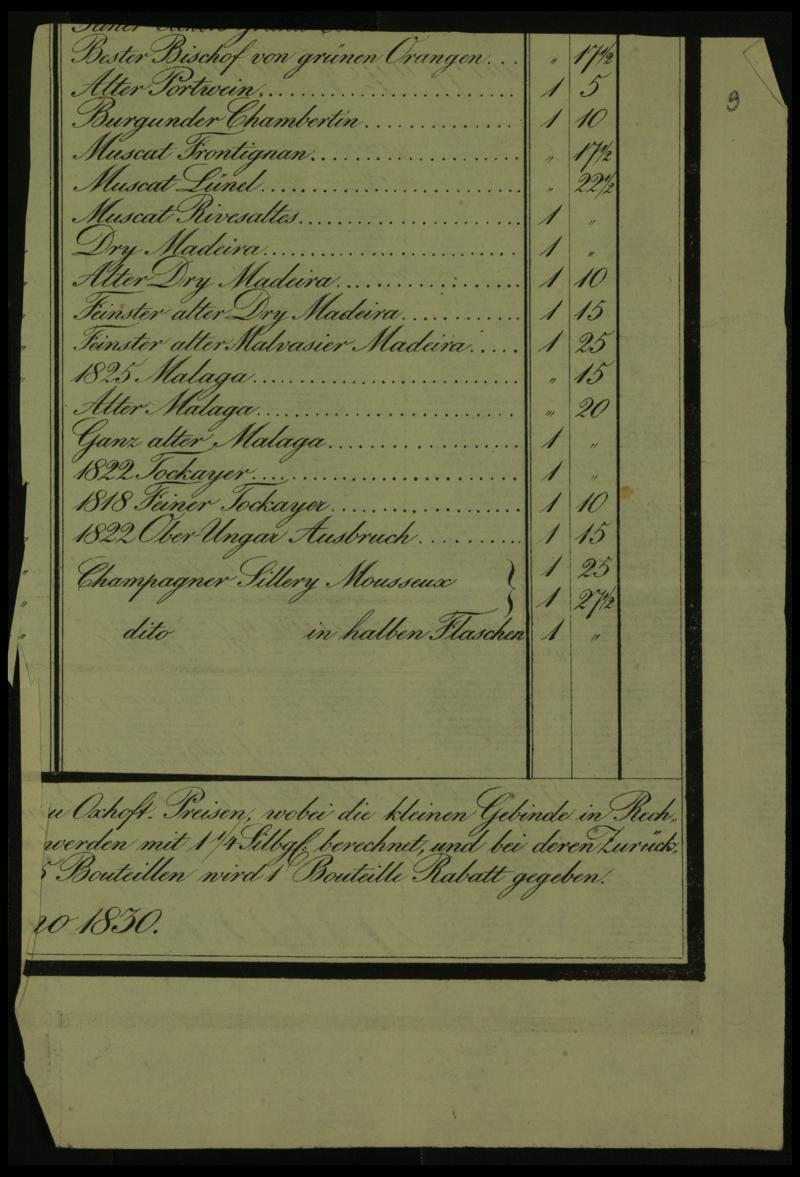 9
Bester Bischof von grünen Orangen . . . " 17 1/2
Alter Portwein . . . 1 5
Burgunder Chambertin . . . 1 10
Muscat Frontignan . . . " 17 1/2
Muscat Lünel . . . " 22 1/2
Muscat Rivesaltes . . . 1 "
Dry Madeira . . . 1 "
Alter Dry Madeira . . . 1 10
Feinster alter Dry Madeira . . . 1 15
Feinster alter Malvasier Madeira . . . 1 25
1825 Malaga . . . " 15
Alter Malaga . . . " 20
Ganz alter Malaga . . . 1 "
1822 Tockayer . . . 1 "
1818 Feiner Tockayer . . . 1 10
1822 Ober Ungar Ausbruch . . . 1 15
Champagner Sillery Mousseux } 1 25
1 27 1/2
dito in halben Flaschen 1 "
u Oxhoft- Preisen, wobei die kleinen Gebinde in Rech-
werden mit 1 1/4 Silbgf. berechnet, und bei deren Zurück-
5 Bouteillen wird 1 Bouteille Rabatt gegeben.
no 1830.